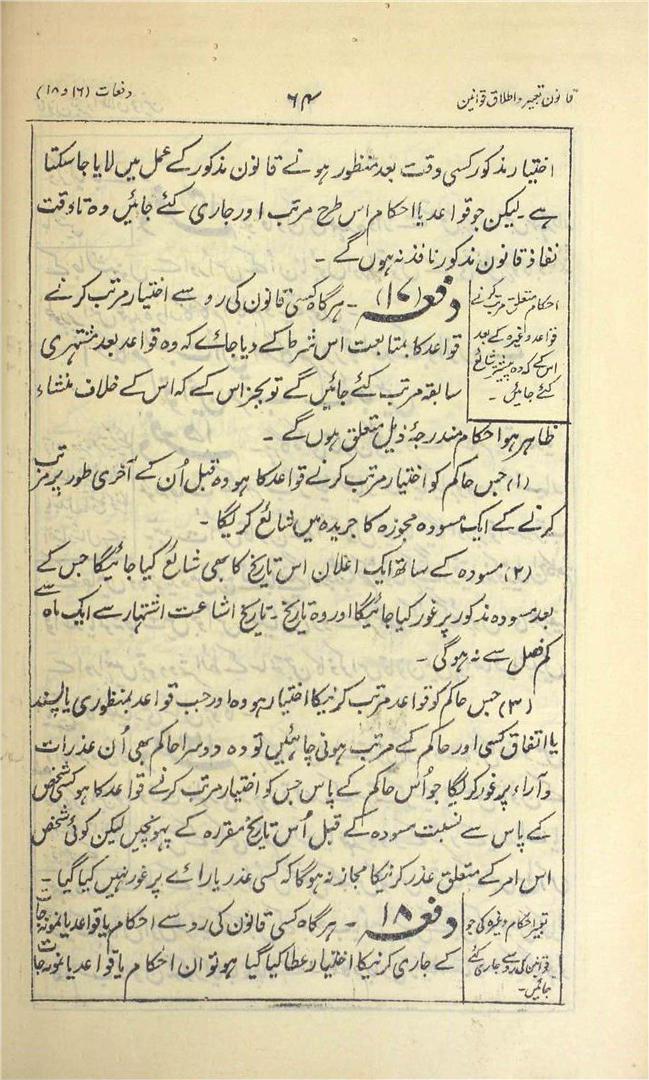 قانون تعبیر و اطلاق قوانین
۶۴
دفعات (۱۶ و ۱۸)
اختیار مذکور کسی وقت بعد منظور ہونے قانون مذکور کے عمل میں لایا جاسکتا
ہے ۔ لیکن جو قواعد یا احکام اس طرح مرتب اور جاری کئے جائیں وہ تا وقت
نفاذ قانون مذکور نافذ نہ ہوں گے ۔
احکام متعلق مرتب کرنے
قواعد وغیرہ کے بعد
اس کے کہ وہ پیشتر شائع
کئے جائیں ۔
دفعہ (۱۷) ۔ ہرگاہ کسی قانون کی رو سے اختیار مرتب کرنے
قواعد کا بمتابعت اس شرط کے دیا جائے کہ وہ قواعد بعد مشتہری
سابقہ مرتب کئے جائیں گے تو بجز اس کے کہ اس کے خلاف منشاء
ظاہر ہو احکام مندرجۂ ذیل متعلق ہوں گے ۔
(۱) جس حاکم کو اختیار مرتب کرنے قواعد کا ہو وہ قبل اُن کے آخری طور پر مرتب
کرنے کے ایک مسودہ مجوزہ کا جریدہ میں شائع کریگا ۔
(۲) مسودہ کے ساتھ ایک اعلان اس تاریخ کا بھی شائع کیا جائیگا جس کے
بعد مسودہ مذکور پر غور کیا جائیگا اور وہ تاریخ ۔ تاریخ اشاعت اشتہار سے ایک ماہ سے
کم فصل سے نہ ہوگی ۔
(۳) جس حاکم کو قواعد مرتب کرنیکا اختیار ہو وہ اور جب قواعد بمنظوری یا پسند
یا اتفاق کسی اور حاکم کے مرتب ہونی چاہئیں تو وہ دوسرا حاکم بھی اُن عذرات
و آراء پر غور کریگا جو اُس حاکم کے پاس جس کو اختیار مرتب کرنے قواعد کا ہو کسی شخص
کے پاس سے نسبت مسودہ کے قبل اُس تاریخ مقررہ کے پہونچیں لیکن کوئی شخص
اس امر کے متعلق عذر کرنیکا مجاز نہ ہوگا کہ کسی عذر یا رائے پر غور نہیں کیا گیا ۔
تعبیر احکام وغیرہ کی جو
قوانین کی رو سے جاری کئے
جائیں ۔
دفعہ ۱۸ ۔ ہرگاہ کسی قانون کی رو سے احکام یا قواعد یا نمونہ جات
کے جاری کرنیکا اختیار عطا کیا گیا ہو تو ان احکام یا قواعد یا نمونہ جات